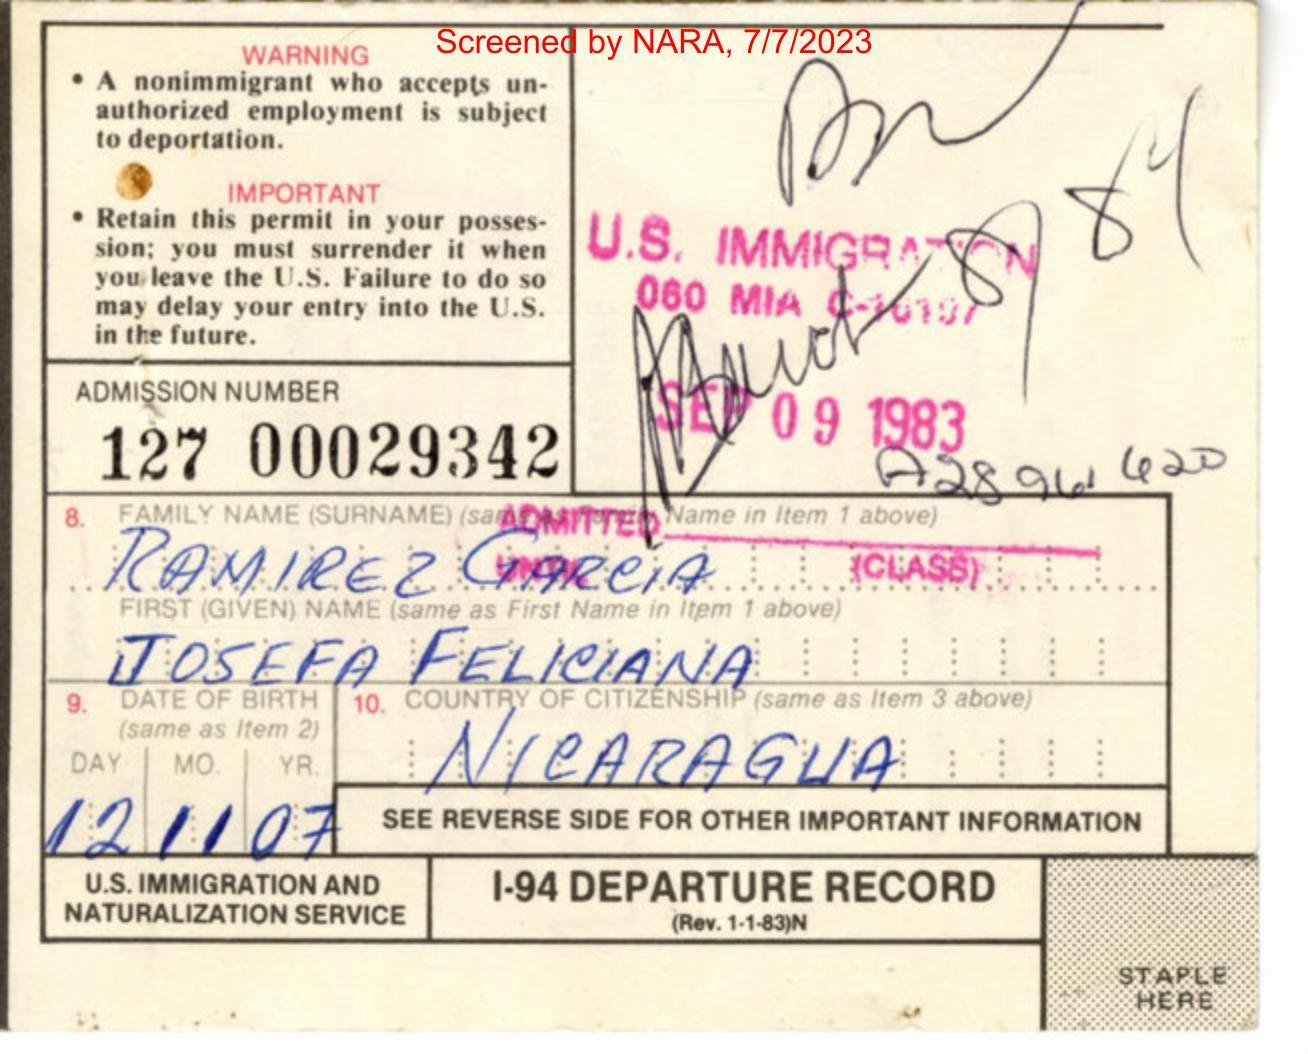 Screened by NARA, 7/7/2023
WARNING
• A nonimmigrant who accepts un-
authorized employment is subject
to deportation.
IMPORTANT
• Retain this permit in your posses-
sion; you must surrender it when
you leave the U.S. Failure to do so
may delay your entry into the U.S.
in the future.
U.S. IMMIGRATION
060 MIA
SEP 09 1983
84
ADMISSION NUMBER
127 00029342
8. FAMILY NAME (SURNAME) (same as Family Name in Item 1 above)
ADMITTED
RAMIREZ GARCIA
UNTIL (CLASS)
FIRST (GIVEN) NAME (same as First Name in Item 1 above)
JOSEFA FELICIANA
9. DATE OF BIRTH
(same as Item 2)
DAY MO. YR.
12 11 07
10. COUNTRY OF CITIZENSHIP (same as Item 3 above)
NICARAGUA
SEE REVERSE SIDE FOR OTHER IMPORTANT INFORMATION
U.S. IMMIGRATION AND
NATURALIZATION SERVICE
I-94 DEPARTURE RECORD
(Rev. 1-1-83)N
STAPLE
HERE